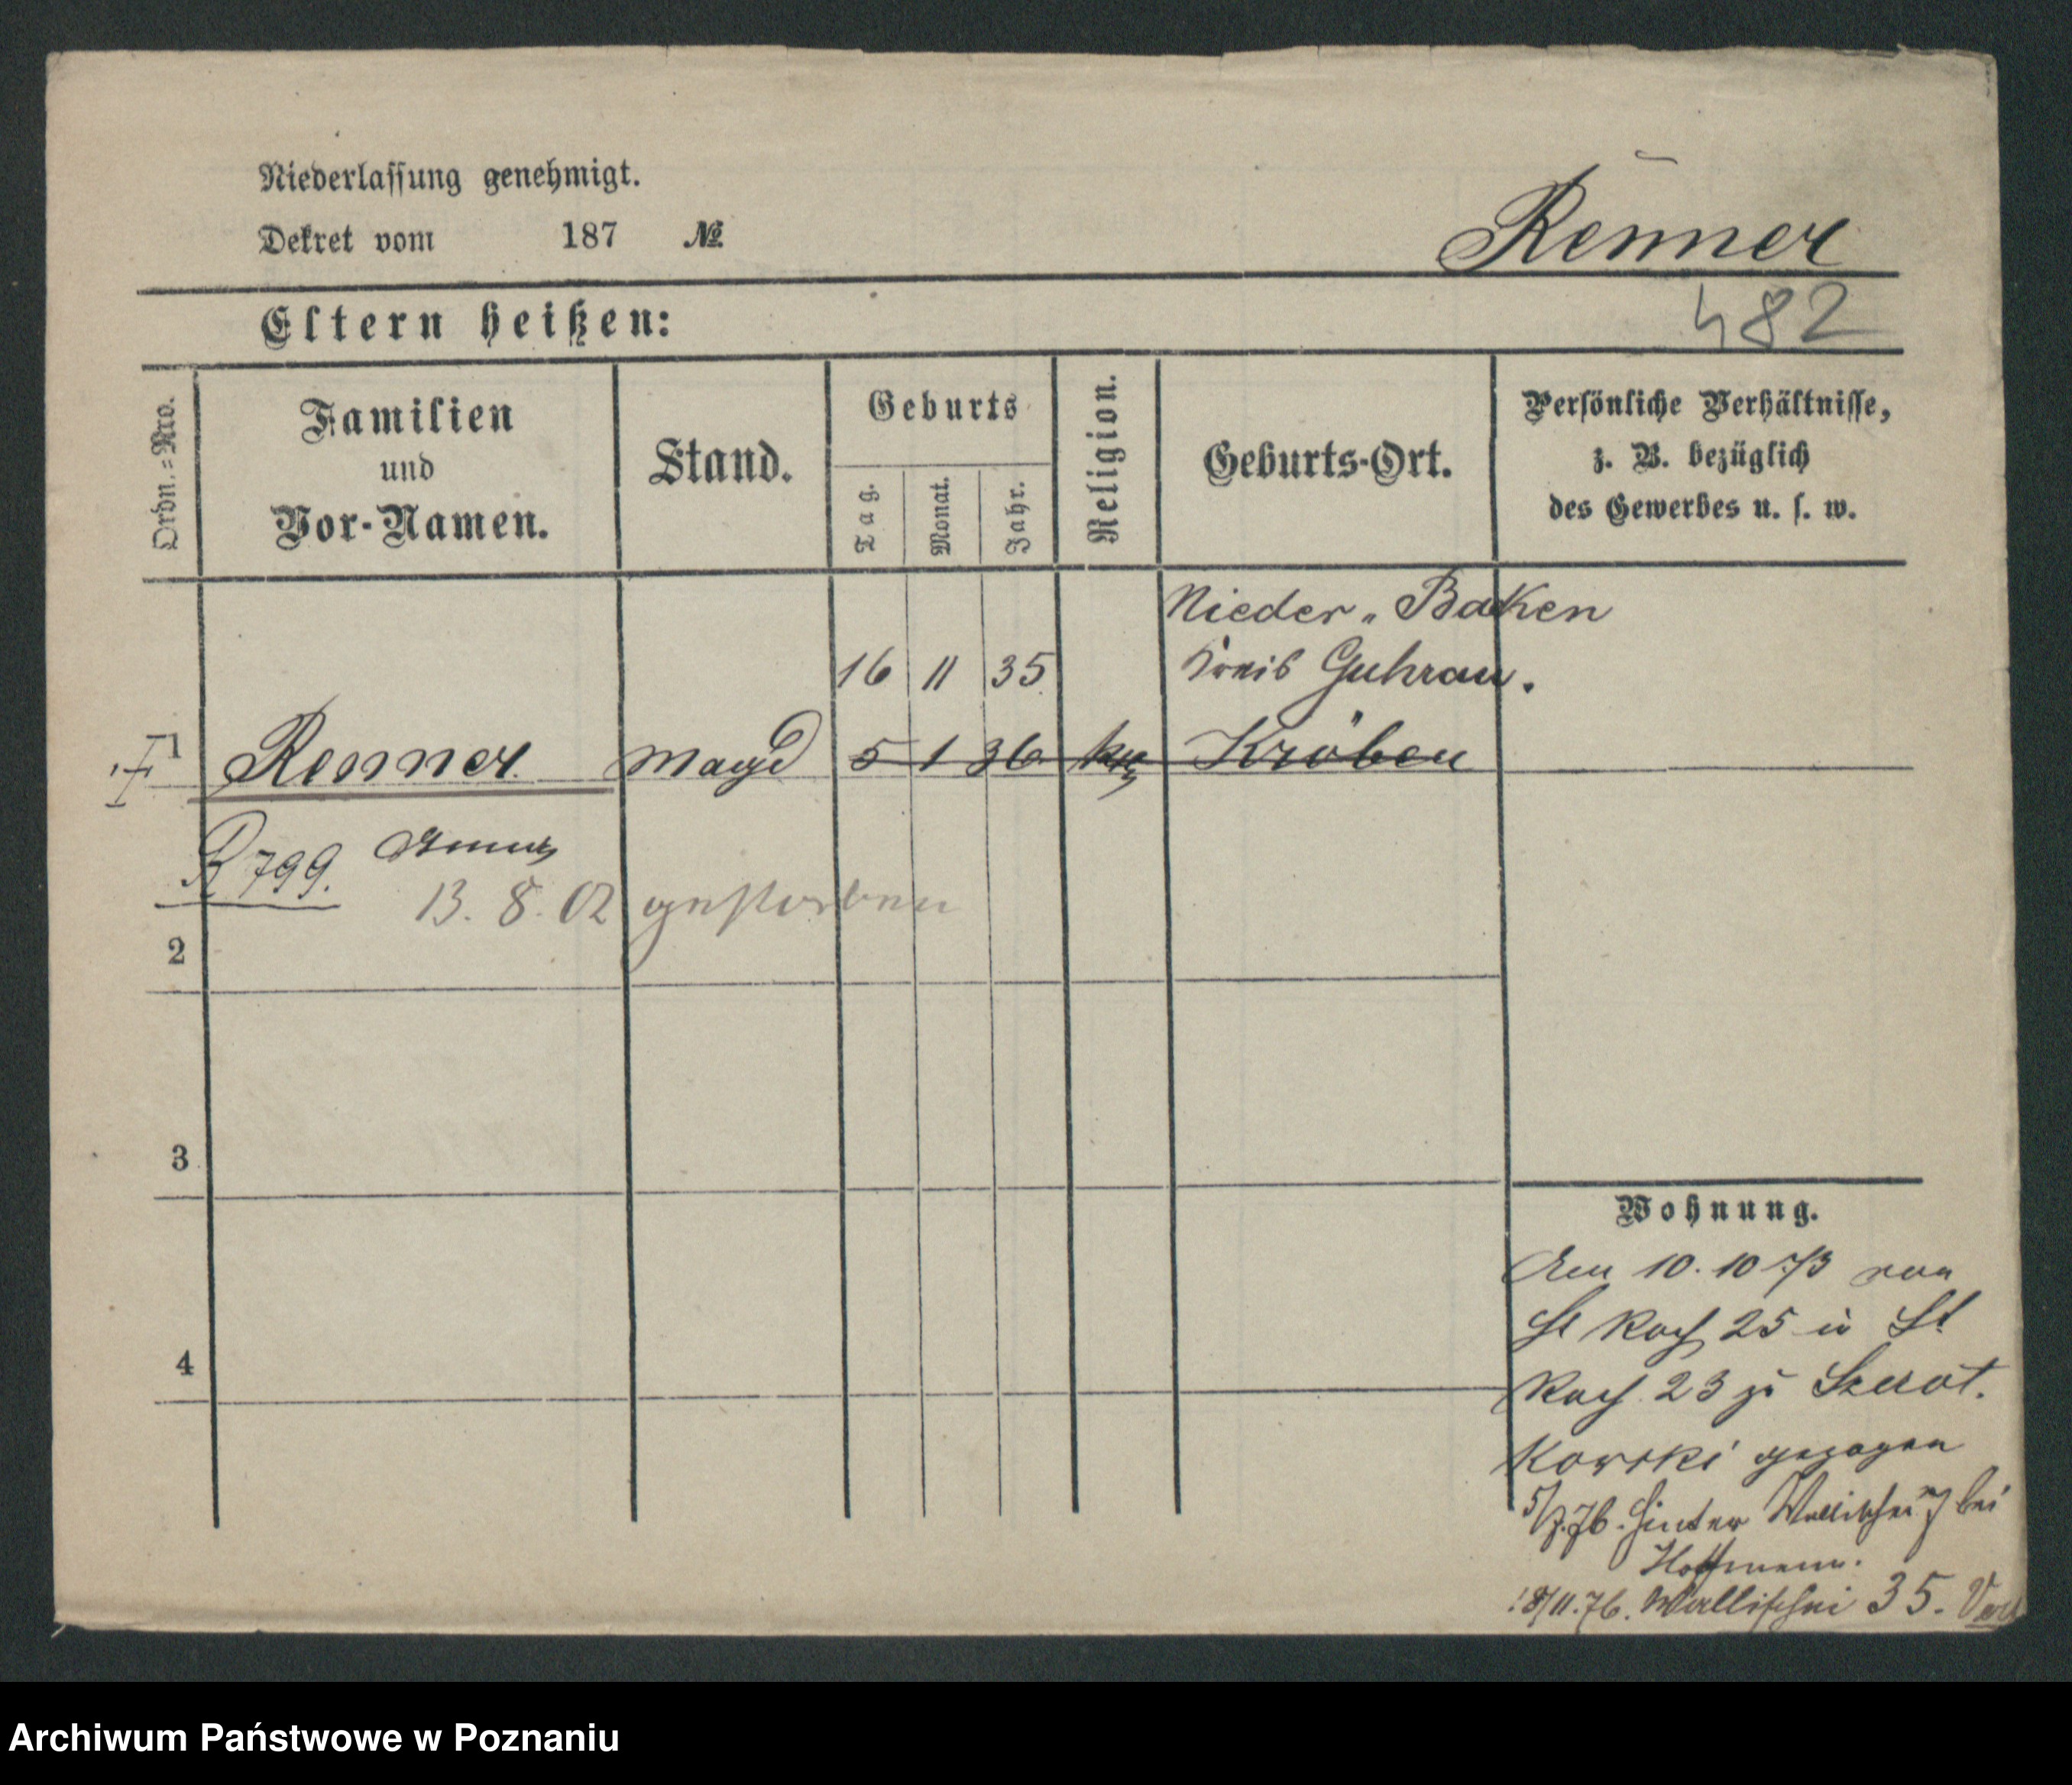 Niederlassung genehmigt.
Dekret vom 187 №
Renner
482
Eltern heißen:
Ordn.=Nro.
Familien
und
Vor-Namen.
Stand.
Geburts
Tag.
Monat.
Jahr.
Religion.
Geburts-Ort.
Persönliche Verhältnisse,
z. B. bezüglich
des Gewerbes u. s. w.
Nieder-Baken
16 11 35 Kreis Guhrau.
1 Renner Magd 5 1 36 kth Kröben
R 799. Anna
13. 8. 02 gestorben
2
3
4
Wohnung.
Am 10. 10 73 von
St Roch 25 n St
Roch 23 zu Szczot.
kowski gezogen
5/7.76. hinter Wallischei 7 bei
Hoffmann.
18/11.76. Wallischei 35.
Archiwum Państwowe w Poznaniu